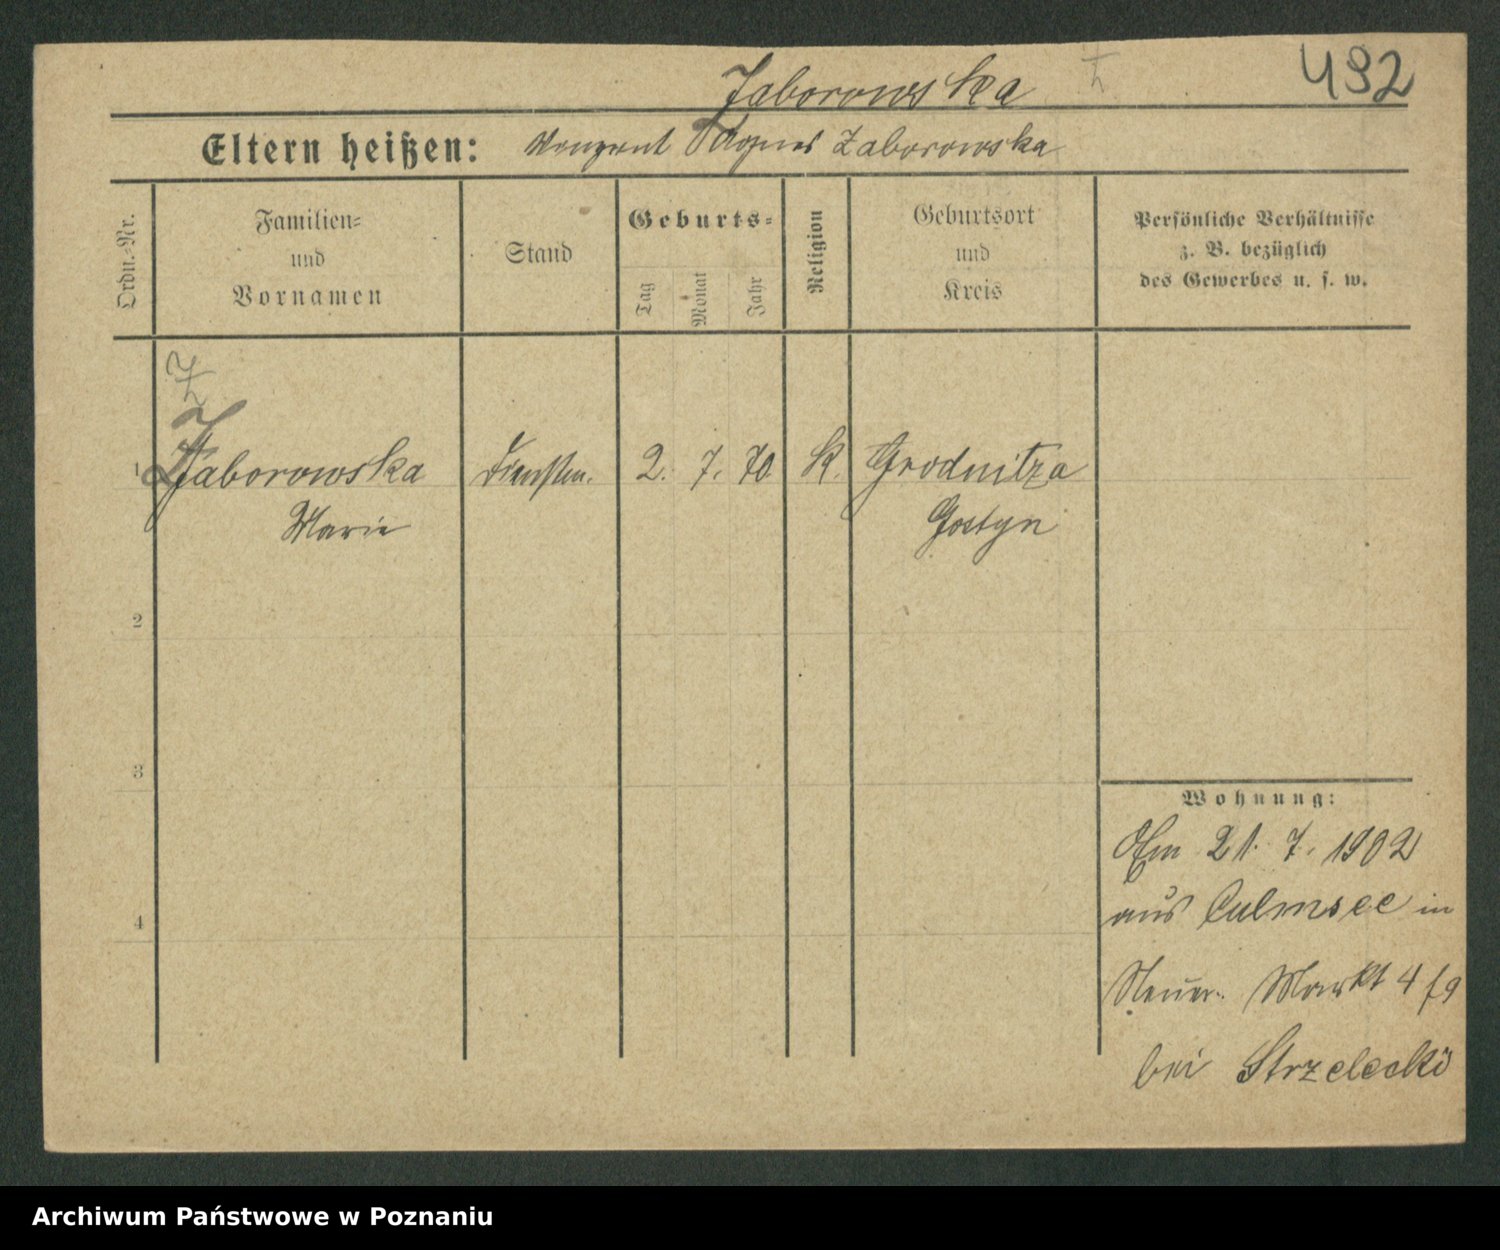 Zaborowska Z 492
Eltern heißen: Vinzent Agnes Zaborowska
Ordn.-Nr.
Familien-
und
Vornamen
Stand
Geburts-
Tag
Monat
Jahr
Religion
Geburtsort
und
Kreis
Persönliche Verhältnisse
z. B. bezüglich
des Gewerbes u. s. w.
Z
1 Zaborowska Dienstm. 2. 7. 70. k. Grodnitza
Marie Gostyn
2
3
Wohnung:
Am 21. 7. 1902
aus Culmsee in
4
Neuer. Markt 4
bei Strzelecki
Archiwum Państwowe w Poznaniu